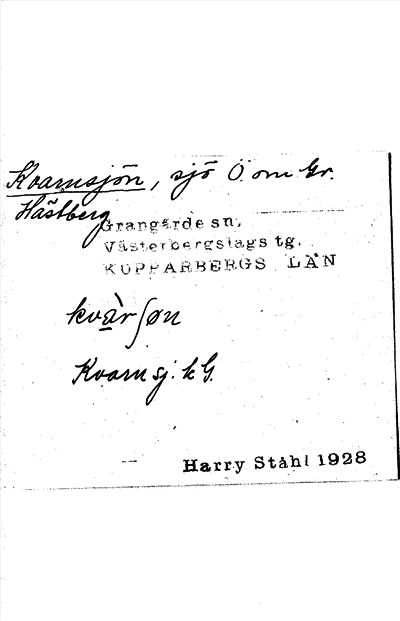 Kvarnsjön, sjö Ö. om Gr.
Hästberg
Grangärde sn,
Västerbergslags tg.
KOPPARBERGS LÄN
kvàrʃøn
Kvarnsj. k G.
Harry Ståhl 1928